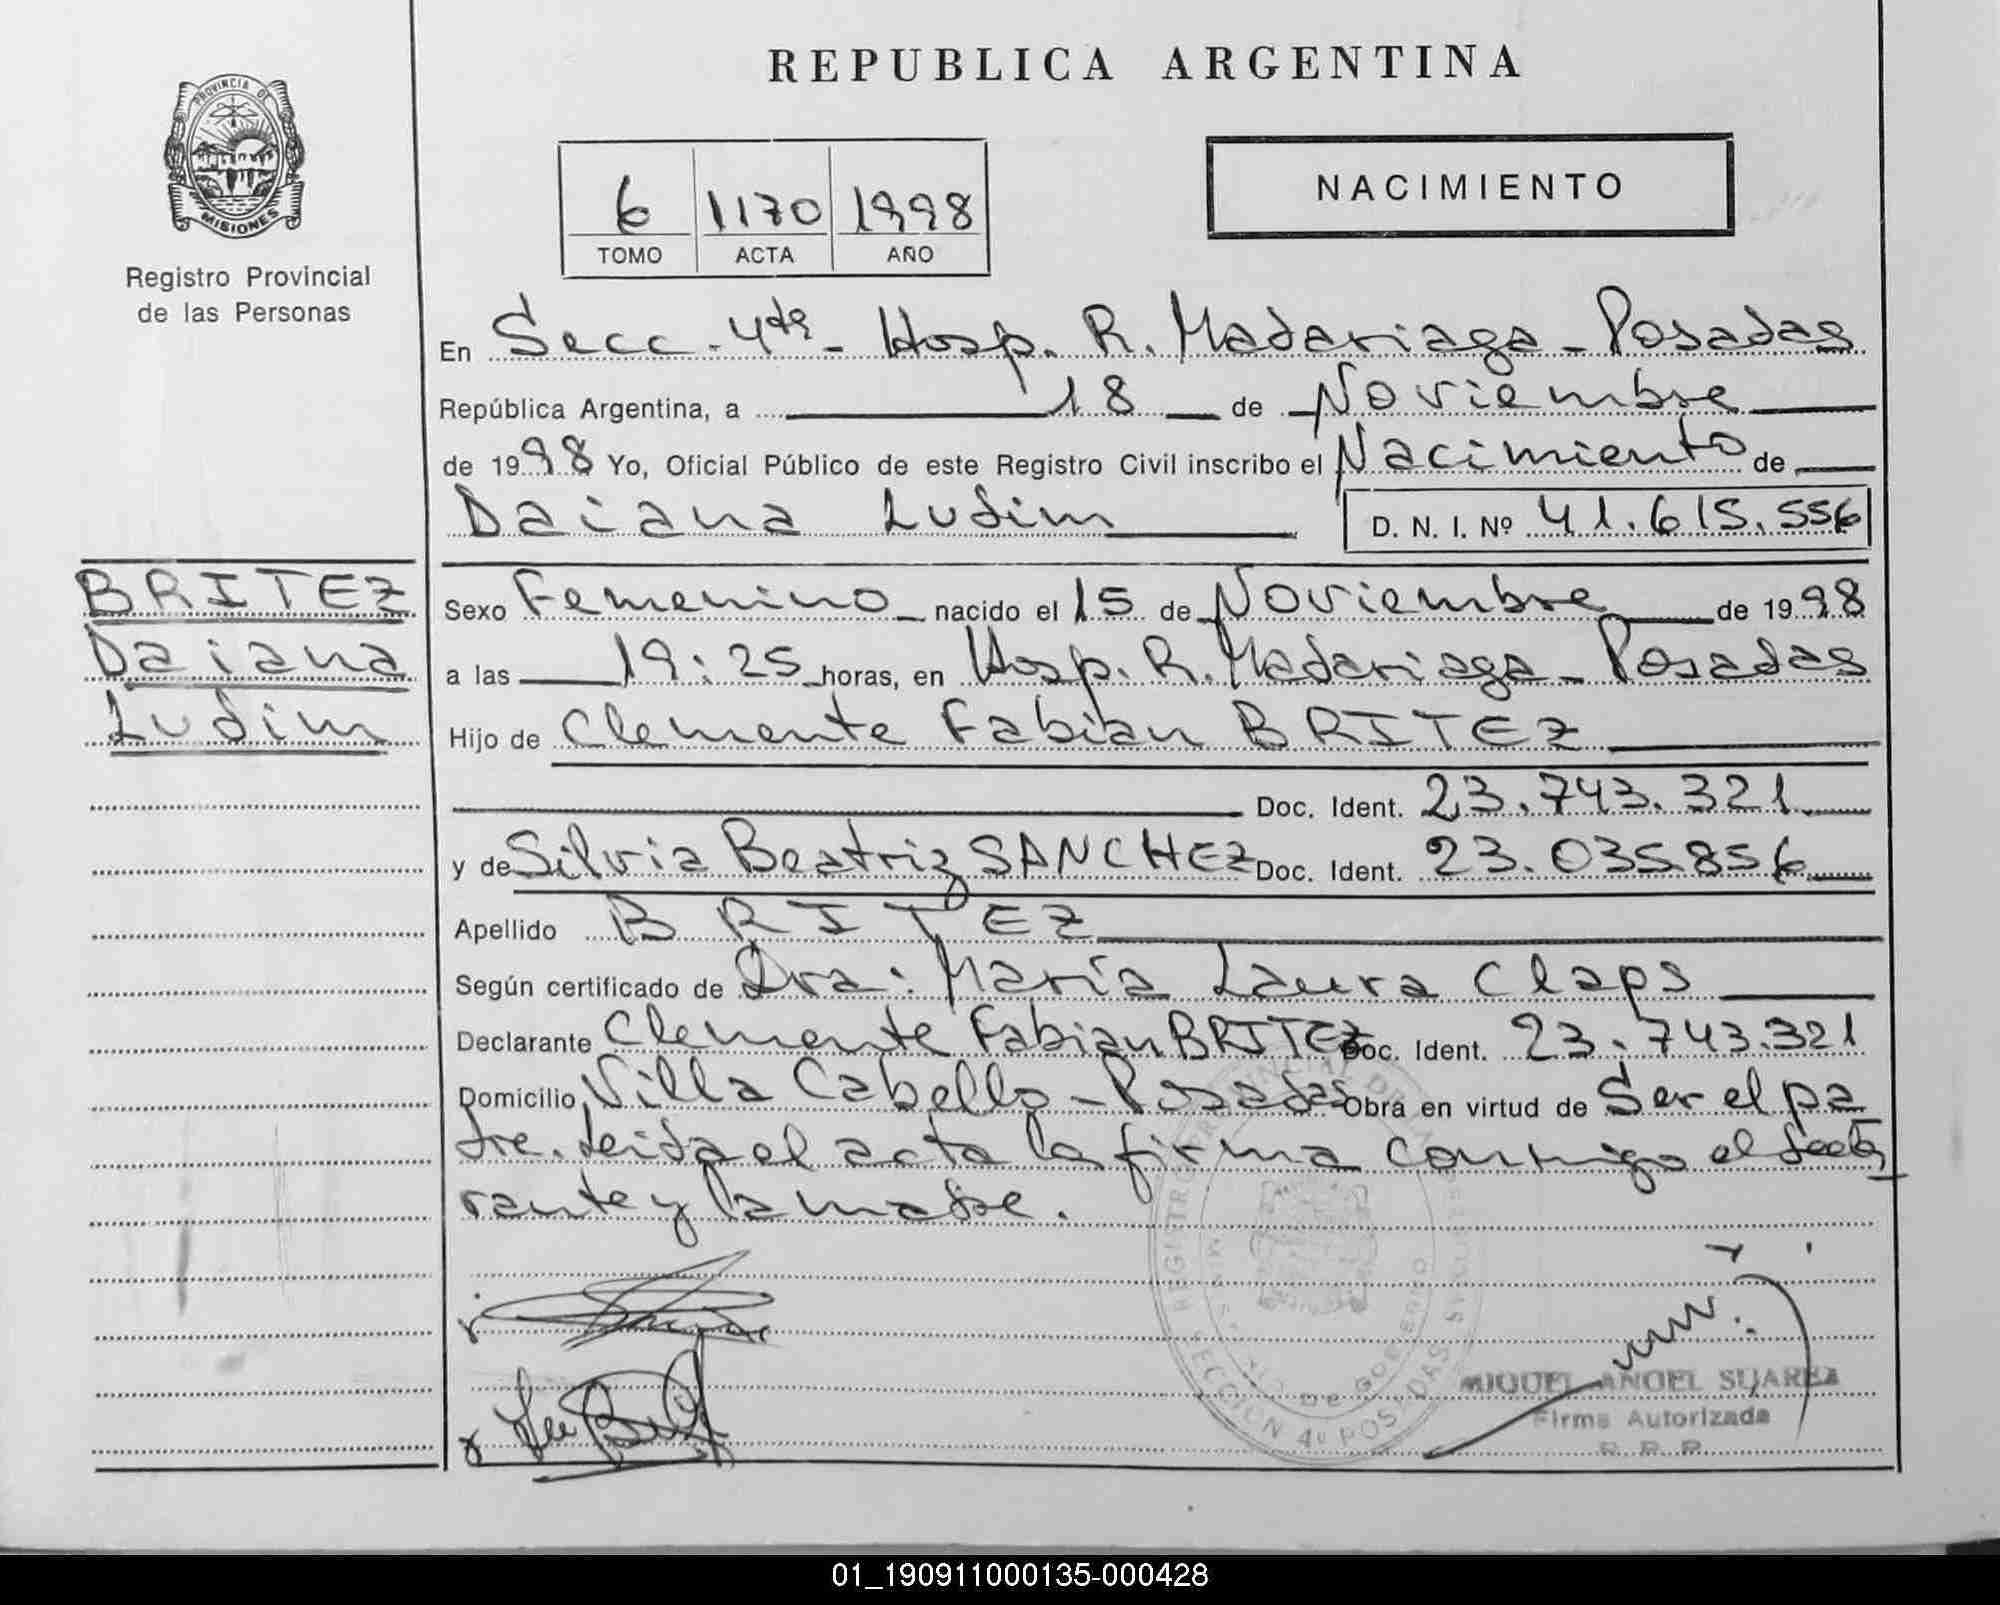 REPUBLICA ARGENTINA
PROVINCIA DE
MISIONES
Registro Provincial
de las Personas
NACIMIENTO
6 1170 1998
TOMO ACTA AÑO
En Secc. 4ta - Hosp. R. Madariaga - Posadas
República Argentina, a 18 de Noviembre
de 1998 Yo, Oficial Público de este Registro Civil inscribo el Nacimiento de
Daiana Ludim D. N. I. Nº 41.615.556
BRITEZ
Daiana
Ludim
Sexo Femenino nacido el 15 de Noviembre de 1998
a las 19:25 horas, en Hosp. R. Madariaga - Posadas
Hijo de Clemente Fabian BRITEZ
Doc. Ident. 23.743.321
y de Silvia Beatriz SANCHEZ Doc. Ident. 23.035.856
Apellido BRITEZ
Según certificado de Dra: María Laura Claps
Declarante Clemente Fabian BRITEZ Doc. Ident. 23.743.321
Domicilio Villa Cabello - Posadas Obra en virtud de Ser el pa
dre. Leida el acta la firma conmigo el decla
rante y la madre.
REGISTRO PROVINCIAL DE LAS
SECCION 4º POSADAS
DE GOBIERNO
MIGUEL ANGEL SUAREZ
Firma Autorizada
R. P. P.
01_190911000135-000428